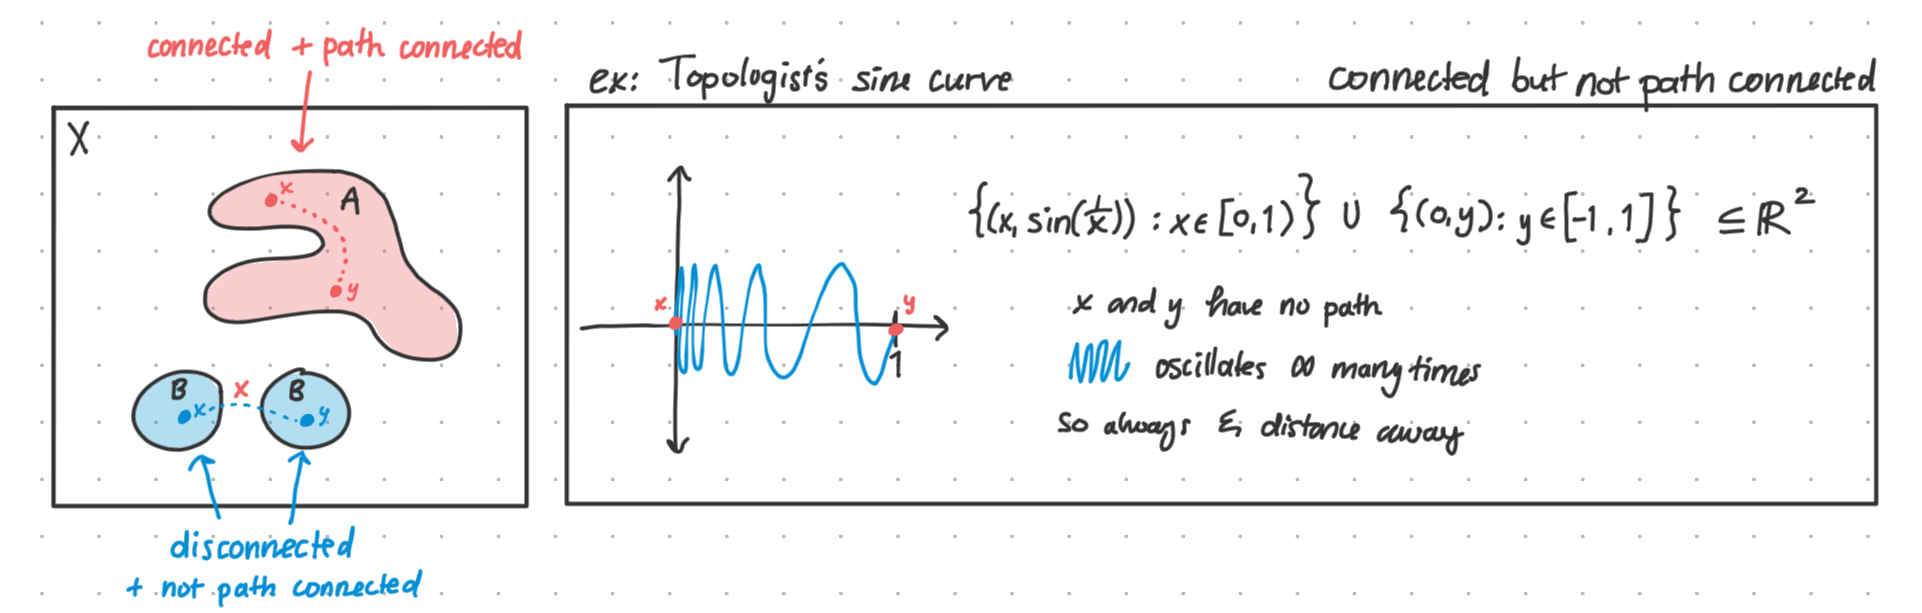 connected + path connected
X
x
A
y
B
x
x
B
y
disconnected
+ not path connected
ex: Topologist's sine curve
connected but not path connected
x
y
1
{(x, sin(1/x)) : x ∈ [0,1)} ∪ {(0,y) : y ∈ [-1,1]} ⊆ ℝ²
x and y have no path
oscillates ∞ many times
so always ε distance away